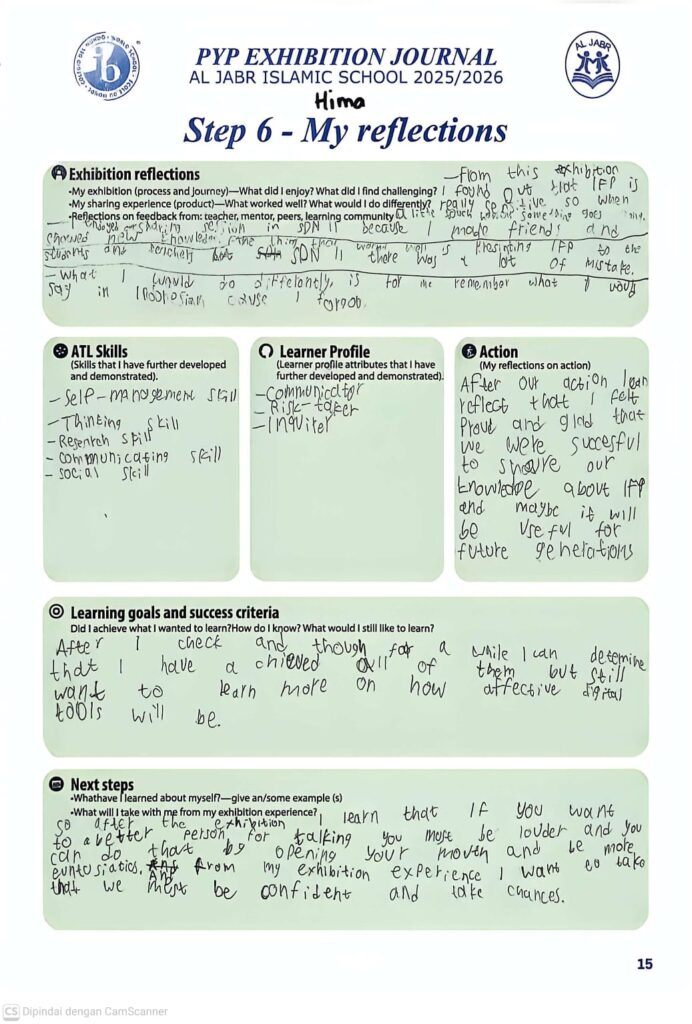 PYP EXHIBITION JOURNAL
AL JABR ISLAMIC SCHOOL 2025/2026
Hima
Step 6 - My reflections
AL JABR
Exhibition reflections
•My exhibition (process and journey)—What did I enjoy? What did I find challenging?
•My sharing experience (product)—What worked well? What would I do differently?
•Reflections on feedback from: teacher, mentor, peers, learning community
- From this exhibition
I found out that IFP is
really sensitive so when
a little goes
- I enjoyed sharing session in SDN 11 because I made friends and
shared new knowledge. One thing that worked well is Presenting IFP to the
students and teachers but SDN 11 there was a lot of mistake.
- What I would do differently is for me remember what I would
say in cause I forgot.
ATL Skills
(Skills that I have further developed
and demonstrated).
- Self-management skill
- Thinking skill
- Research skill
- communicating skill
- social skill
Learner Profile
(Learner profile attributes that I have
further developed and demonstrated).
- Communicator
- Risk-taker
- Inquirer
Action
(My reflections on action)
After our action I can
reflect that I felt
Proud and glad that
we were succesful
to shaure our
knowledge about IFP
and maybe it will
be useful for
future generations
Learning goals and success criteria
Did I achieve what I wanted to learn?How do I know? What would I still like to learn?
After I check and though for a while I can detemine
that I have a chieved all of them but still
want to learn more on how affective digital
tools will be.
Next steps
•Whathave I learned about myself?—give an/some example (s)
•What will I take with me from my exhibition experience?
so after the exhibition I learn that If you want
to a better person for talking you must be louder and you
can do that by opening your mouth and be more
euntusiatics. And from my exhibition experience I want to take
that we must be confident and take chances.
15
CS Dipindai dengan CamScanner